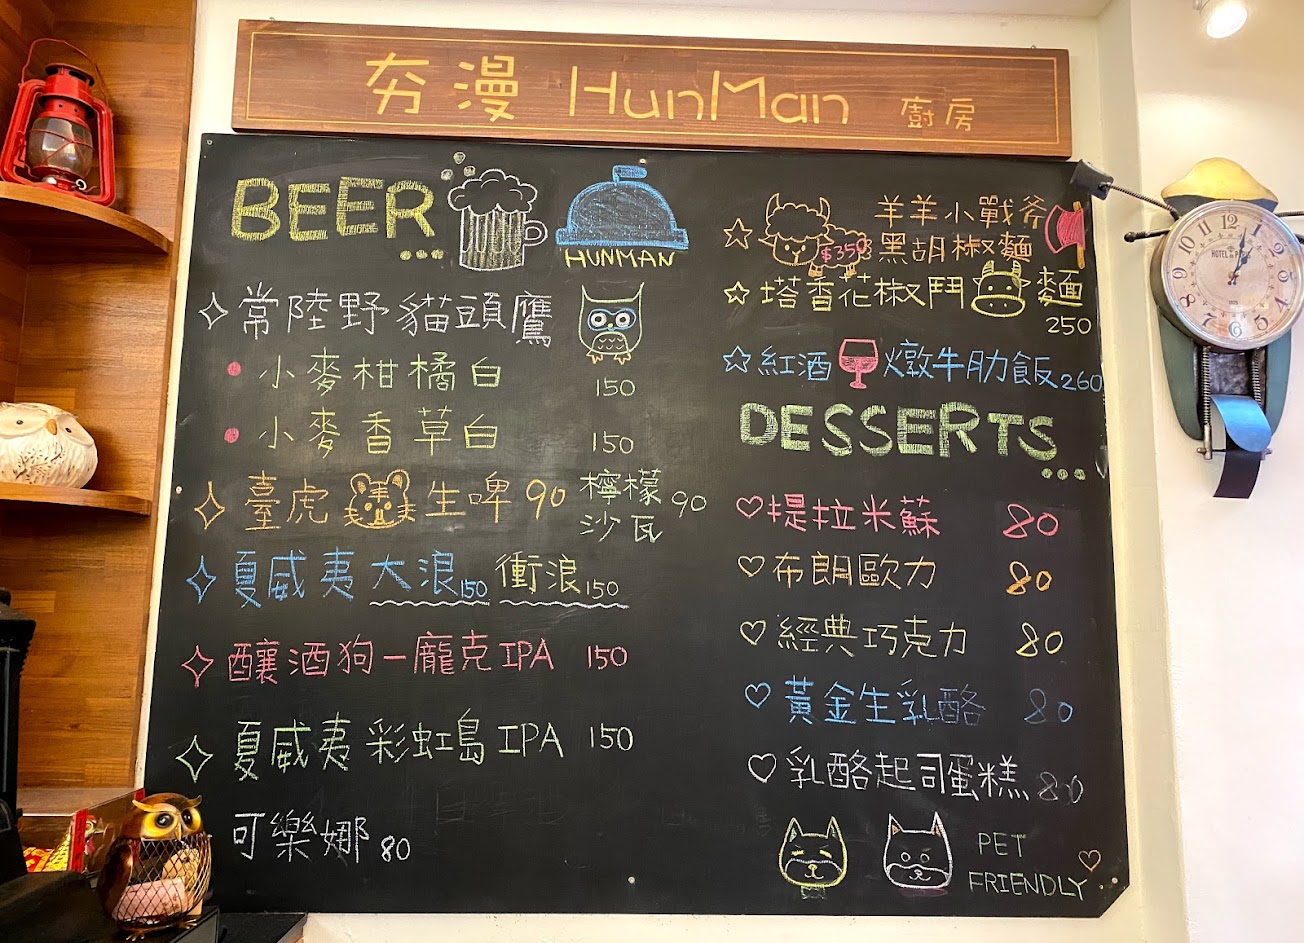 夯漫 HunMan 廚房
BEER...
HUNMAN
常陸野貓頭鷹
小麥柑橘白 150
小麥香草白 150
臺虎生啤 90 檸檬沙瓦 90
夏威夷大浪150 衝浪150
釀酒狗一龐克IPA 150
夏威夷彩虹島IPA 150
可樂娜 80
羊羊小戰斧
$350 黑胡椒麵
塔香花椒鬥麵
250
紅酒燉牛肋飯260
DESSERTS...
提拉米蘇 80
布朗歐力 80
經典巧克力 80
黃金生乳酪 80
乳酪起司蛋糕 80
PET
FRIENDLY
12
1
2
3
4
5
6
7
8
9
10
11